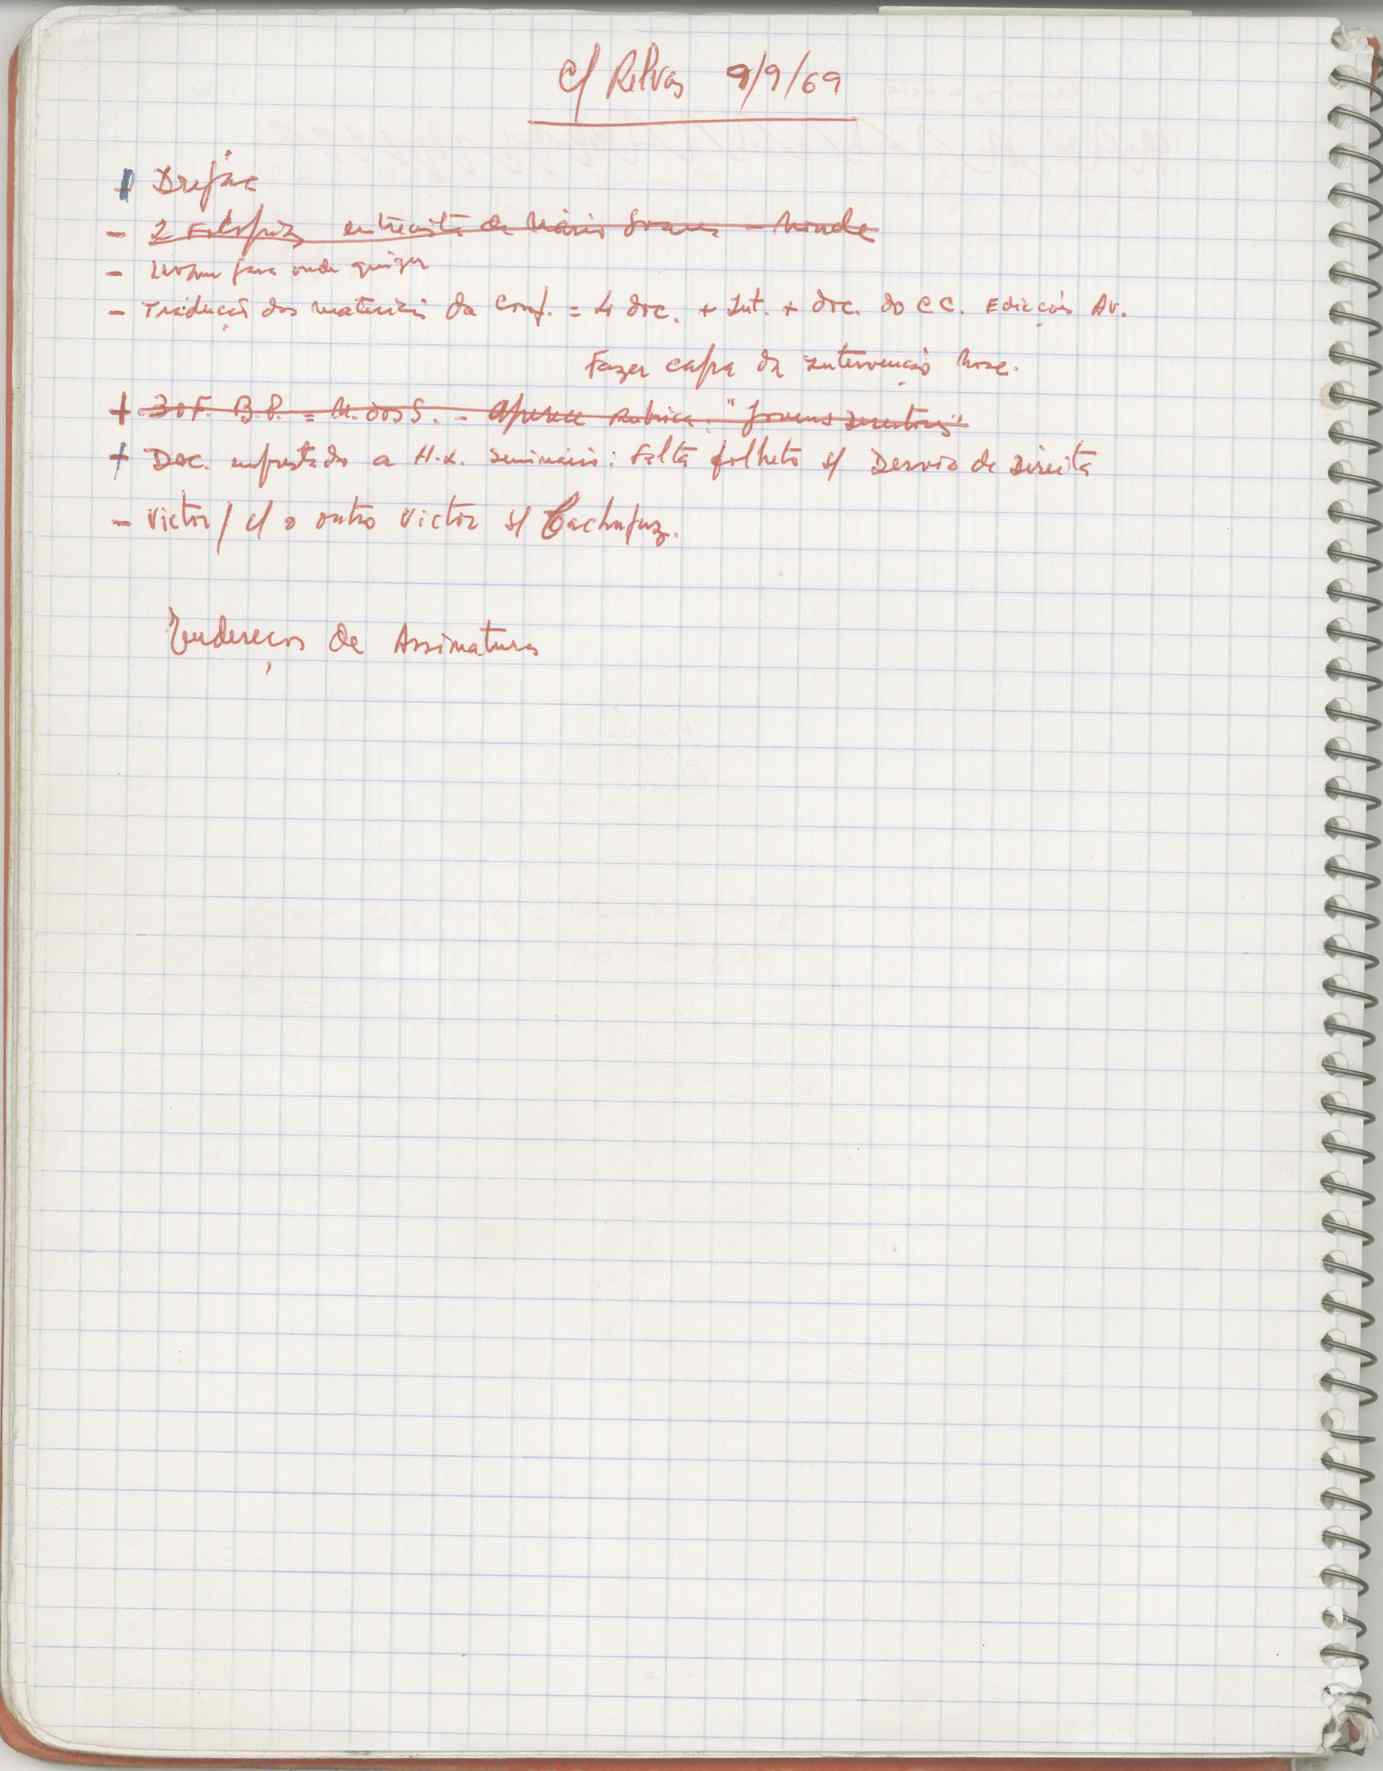 c/ Relvas 9/9/69
+
- 2 Fotocópias entrevista de Mário Soares - Monde
- para onde quizer
- Tradução dos materiais da Conf. = 4 doc. + Int. + doc. do CC. Edições Av.
Fazer capa da intervenção
+ 3 o F. B.P. = M. dos S. - Aparece rubrica: "Jovens
+ Doc. emprestado a H.K. Seminário: Falta folheto s/ Desvio de Direita
- Victor / c/ o outro Victor s/ Cachapuz.
Endereços de Assinaturas